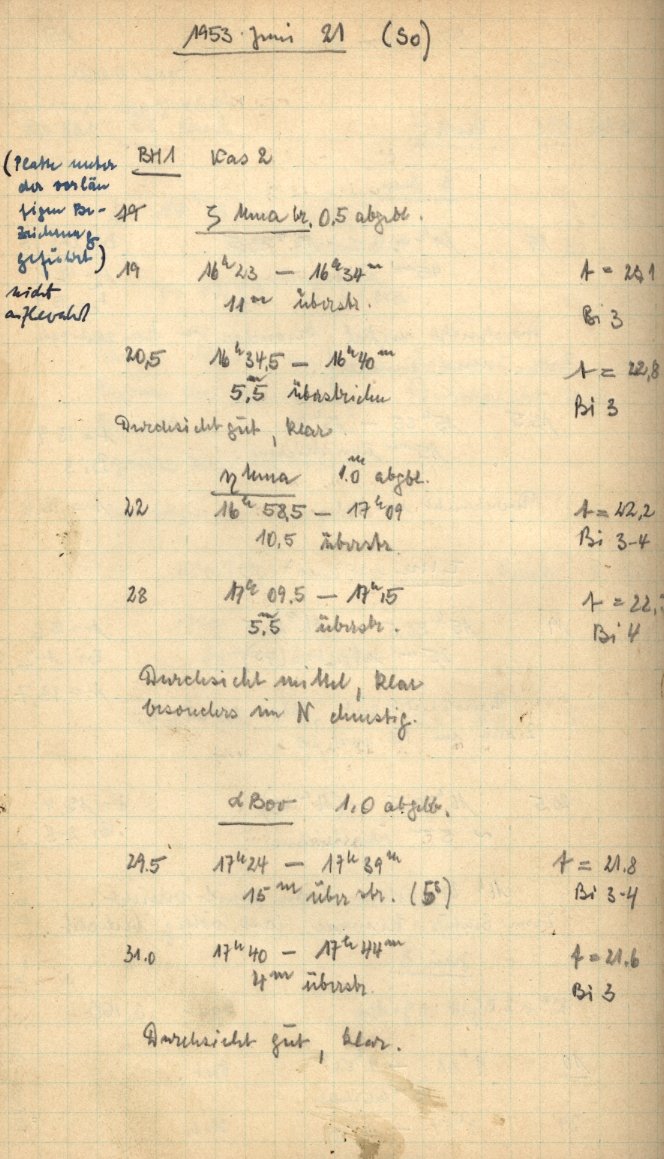 1953 Juni 21 (So)
(Platte unter
der vorläu
figen Be-
zeichnung
geführt)
nicht
aufbewahrt
BH1 Kas 2
ζ Uma br. 0,5 abgebl.
19 16h23 — 16h34m
11m überstr.
Bi 3
20,5 16h34,5 — 16h40m t = 22,8
5,5m überstrichen Bi 3
Durchsicht gut, klar
η Uma 1.0m abgbl.
22 16h58,5 — 17h09 t = 22,2
10,5 überstr. Bi 3-4
28 17h09.5 — 17h15 t = 22,
5,5m überstr. Bi 4
Durchsicht mittel, klar
besonders im N dunstig.
α Boo 1,0 abgebl.
29.5 17h24 — 17h39m t = 21.8
15m überstr. (5s) Bi 3-4
31.0 17h40 — 17h44m t = 21.6
4m überstr. Bi 3
Durchsicht gut, klar.